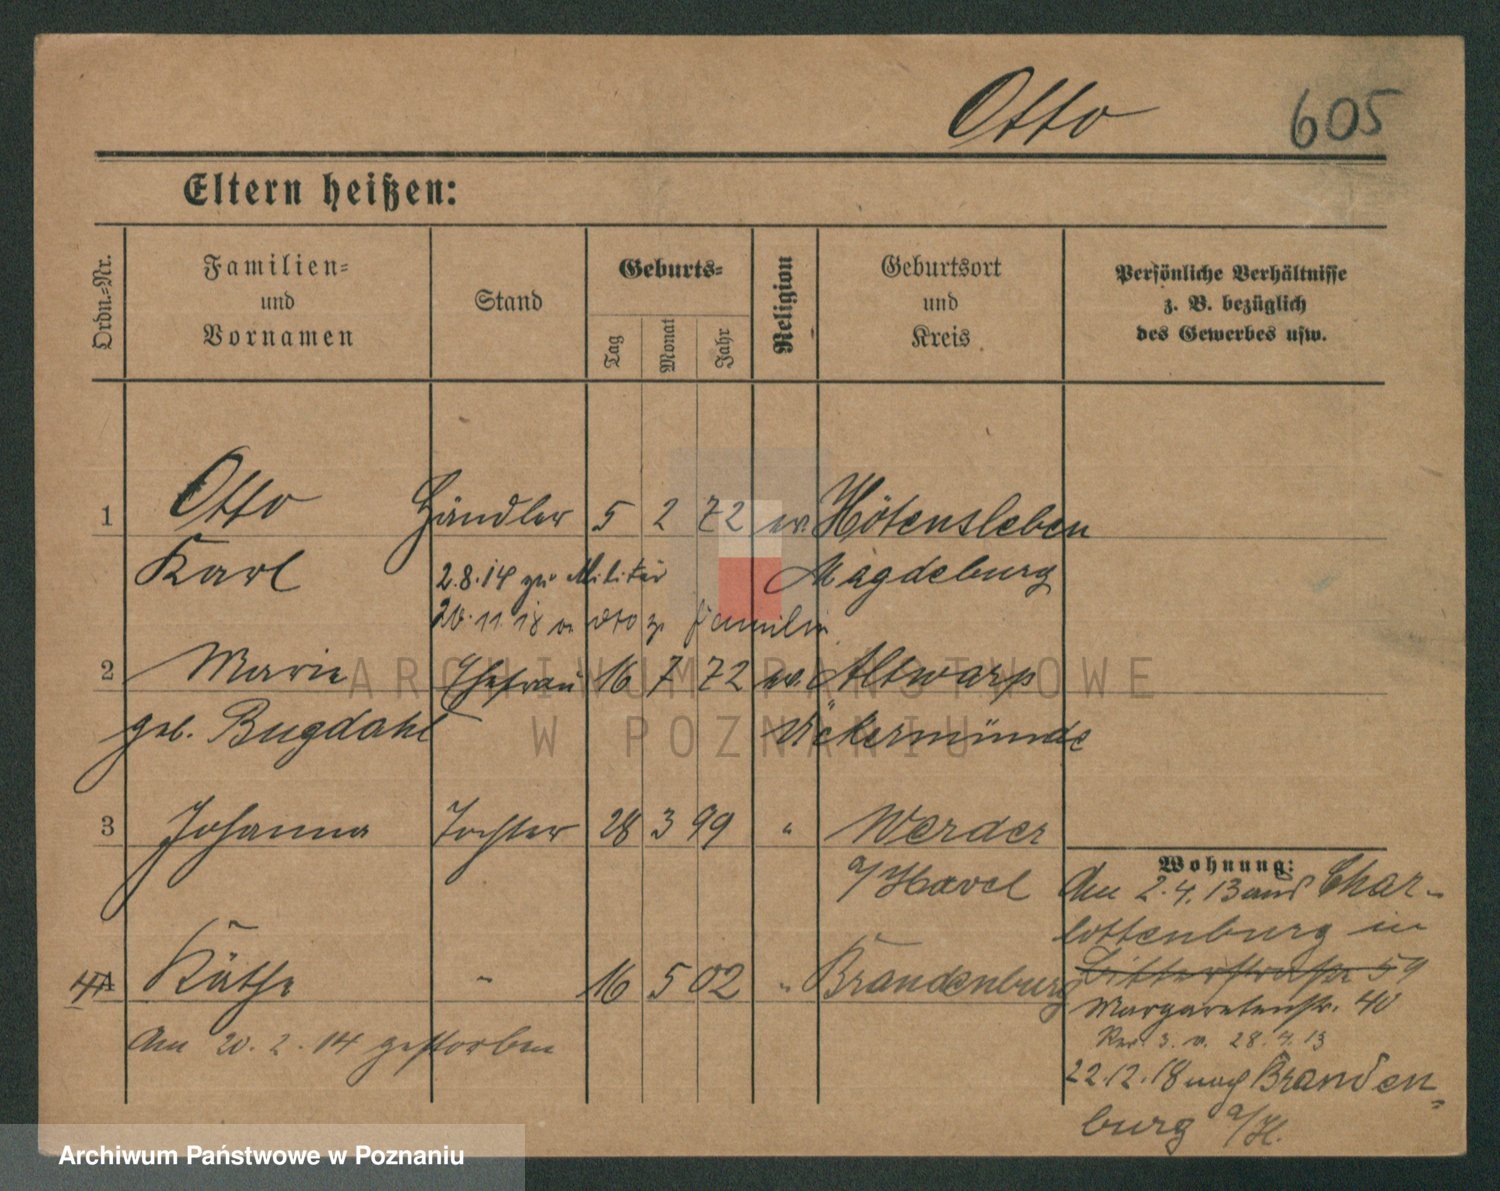 Otto 605
Eltern heißen:
Ordn.-Nr. Familien- und Vornamen Stand Geburts- Tag Monat Jahr Religion Geburtsort und Kreis Persönliche Verhältnisse z. B. bezüglich des Gewerbes usw.
1 Otto Händler 5 2 72 ev. Hötensleben
Karl 2.8.14 zum Militär Magdeburg
20.11.18 v. dto z. Familie
2 Marie Ehefrau 16 7 72 ev. Altwarp
geb. Bugdahl Ückermünde
3 Johanna Tochter 28 3 99 " Werder
a/Havel
4 Käthe " 16 5 02 " Brandenburg
Am 20.2.14 gestorben
Wohnung:
Am 2.4.13 aus Char-
lottenburg in
Ritterstraße 59
Margaretenstr. 40
28.4.13
22.12.18 nach Branden-
burg a/H.
ARCHIWUM PAŃSTWOWE
W POZNANIU
Archiwum Państwowe w Poznaniu